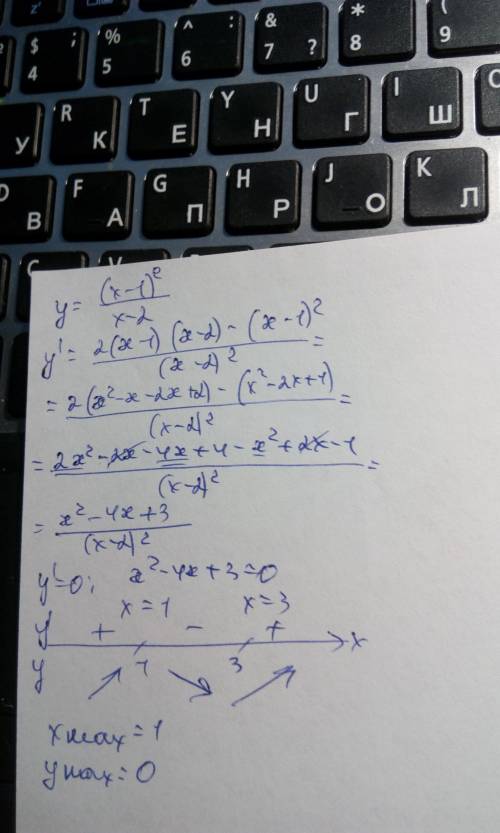 z'
$ ; % ^ : & * (
4 5 6 7 ? 8 9
R T Y U I
У К Е Н Г Ш
F G H J K
В А П Р О Л
C V
y = (x-1)² / x-2
y' = 2(x-1)(x-2) - (x-1)² / (x-2)² =
= 2(x²-x-2x+2) - (x²-2x+1) / (x-2)² =
= 2x²-2x-4x+4-x²+2x-1 / (x-2)² =
= x²-4x+3 / (x-2)²
y'=0; x²-4x+3=0
x=1 x=3
y' + - + x
y 1 3
xmax=1
ymax=0